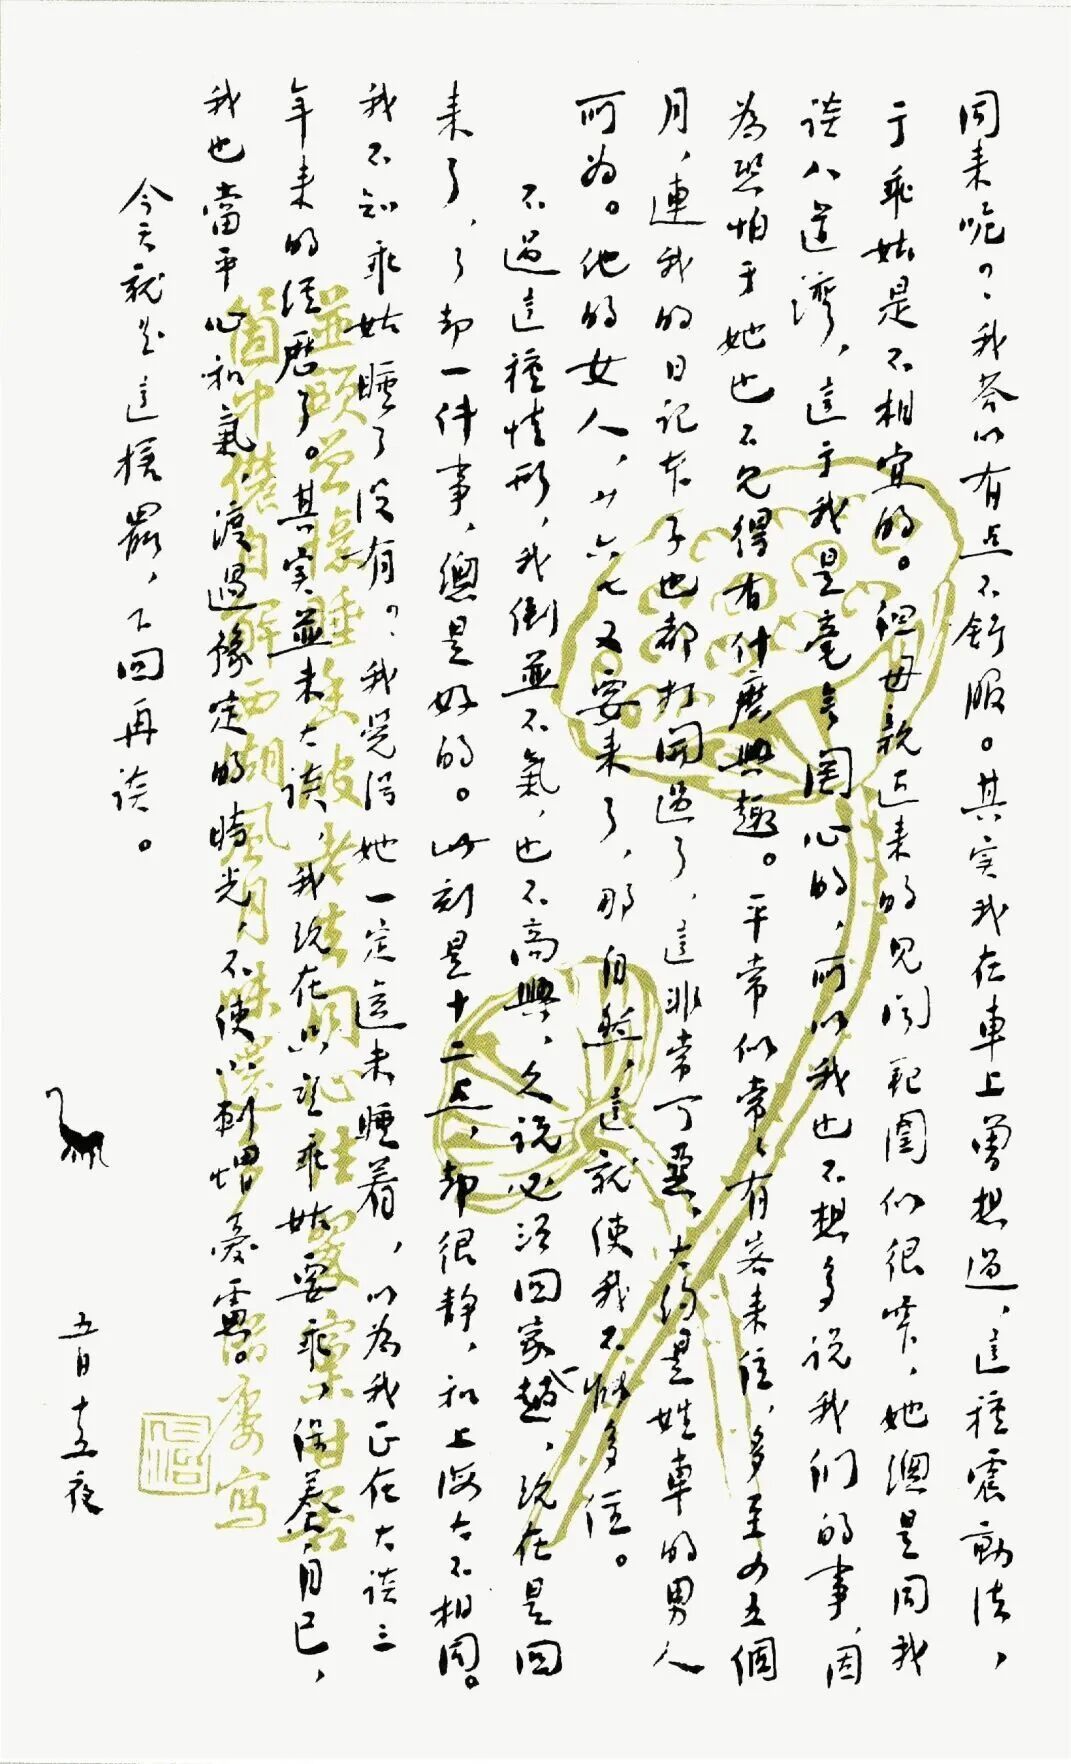 同来呢？我答以有点不舒服。其实我在車上曾想过，這種震動法，
于乖姑是不相宜的。但母親近来的見闻範圍似很窄，她總是同我
谈八道灣，這于我是毫無関心的，所以我也不想多说我们的事，因
為恐怕于她也不見得有什麽興趣。平常似常常有客来住，多至四五個
月，連我的日記本子也都打開過了，這非常可惡，大約是姓車的男人
所為。他的女人，廿六七又要来了，那自然，這就使我不能多住。
不過這種情形，我倒並不氣，也不高興，久说必须回家一趟，现在是回
来了，了却一件事，總是好的。此刻是十二点，却很静，和上海大不相同。
我不知乖姑睡了没有？我觉得她一定還未睡着，以為我正在大談三
年来的经歷了。其实並未大談，我现在只望乖姑要乖，保養自己，
我也當平心和氣，渡過豫定的時光，不使小刺蝟憂慮。
今天就是這樣罷，下回再谈。
五月十五夜
並頭曾憶睡香波
老去同心住翠窠
甘苦
箇中儂自解西湖風月味還
寫